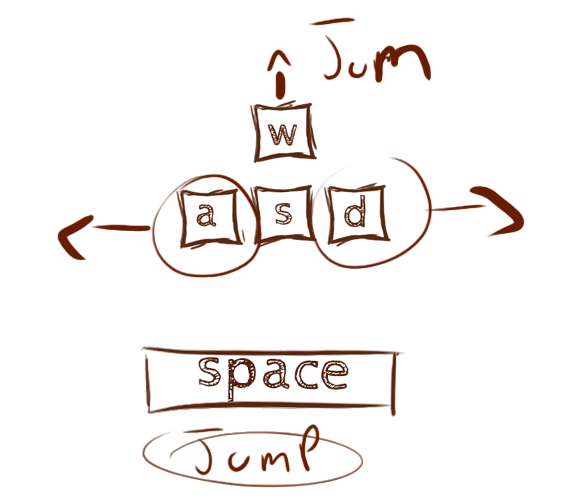 Jum
w
a s d
space
Jump